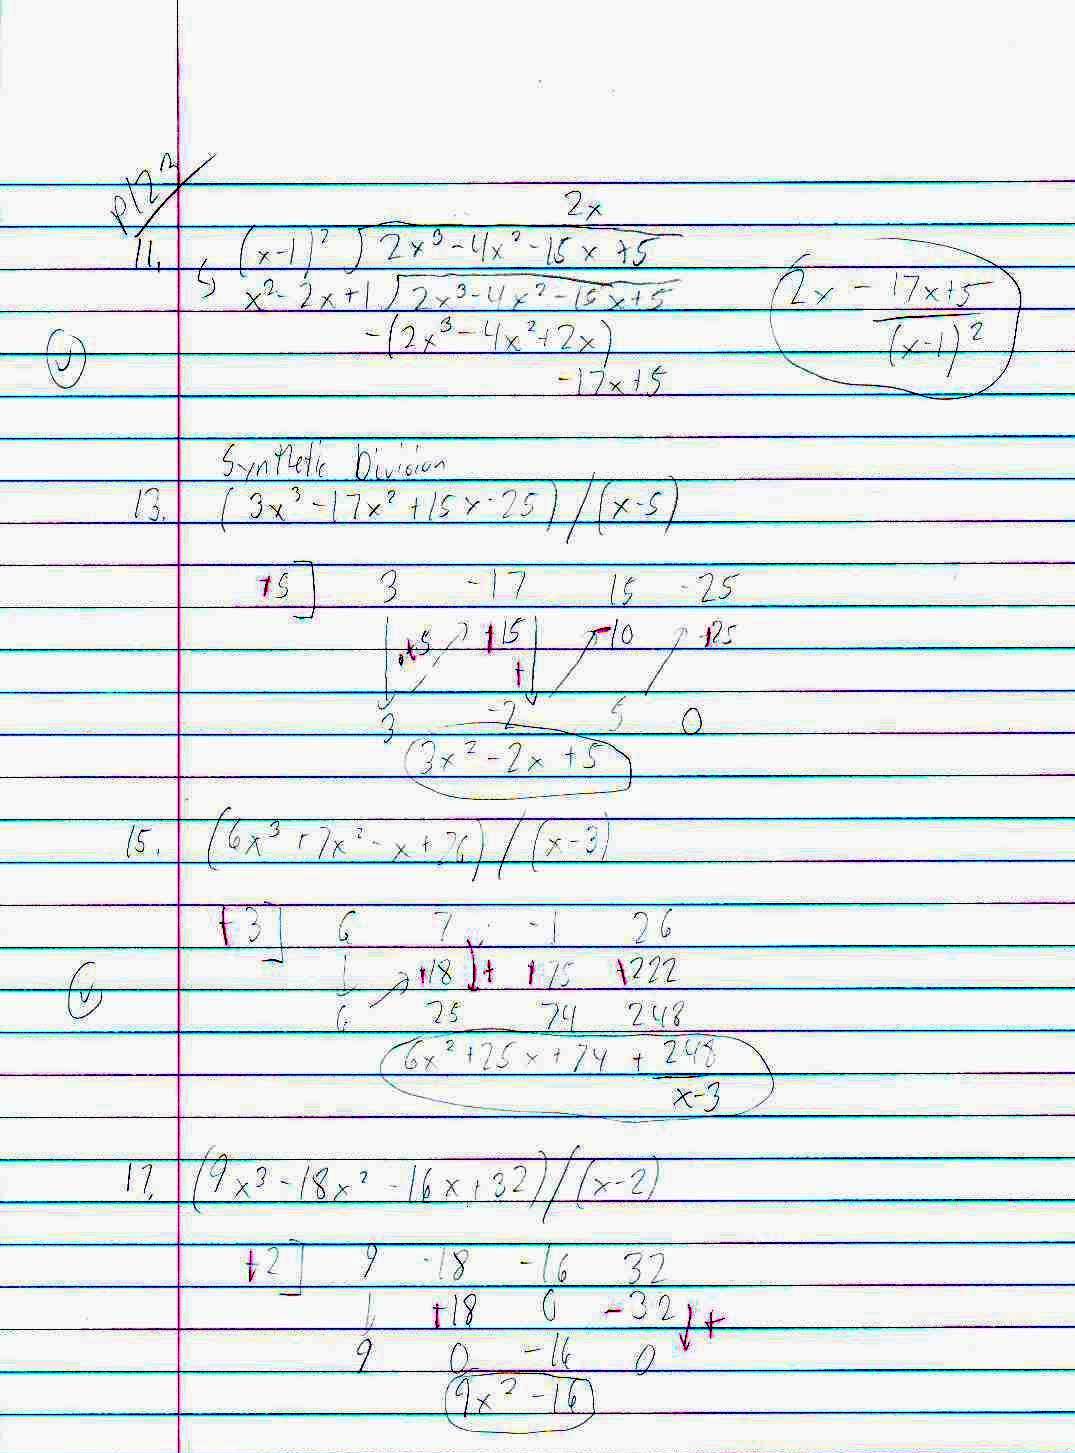 p122
2x
11. (x-1)² √2x³-4x²-15x+5
↳ x²-2x+1 √2x³-4x²-15x+5
-(2x³-4x²+2x)
-17x+5
2x - 17x+5
(x-1)²
Synthetic Division
13. (3x³-17x²+15x-25)/(x-5)
+5] 3 -17 15 -25
+5 +15 -10 +25
+
3 -2 5 0
3x²-2x+5
15. (6x³+7x²-x+26)/(x-3)
+3] 6 7 -1 26
+18 + +75 +222
6 25 74 248
6x²+25x+74 + 248
x-3
17. (9x³-18x²-16x+32)/(x-2)
+2] 9 -18 -16 32
+18 0 -32 +
9 0 -16 0
9x²-16